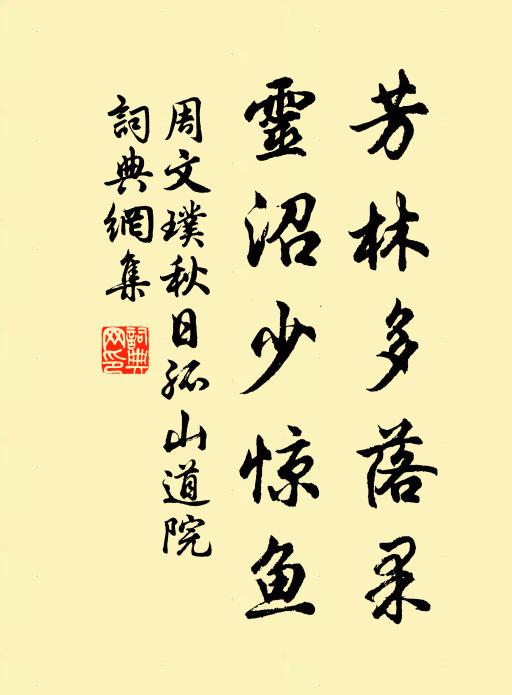 芳林多落果
靈沼少惊鱼
周文璞秋日孤山道院
詞典網集
詞典網印